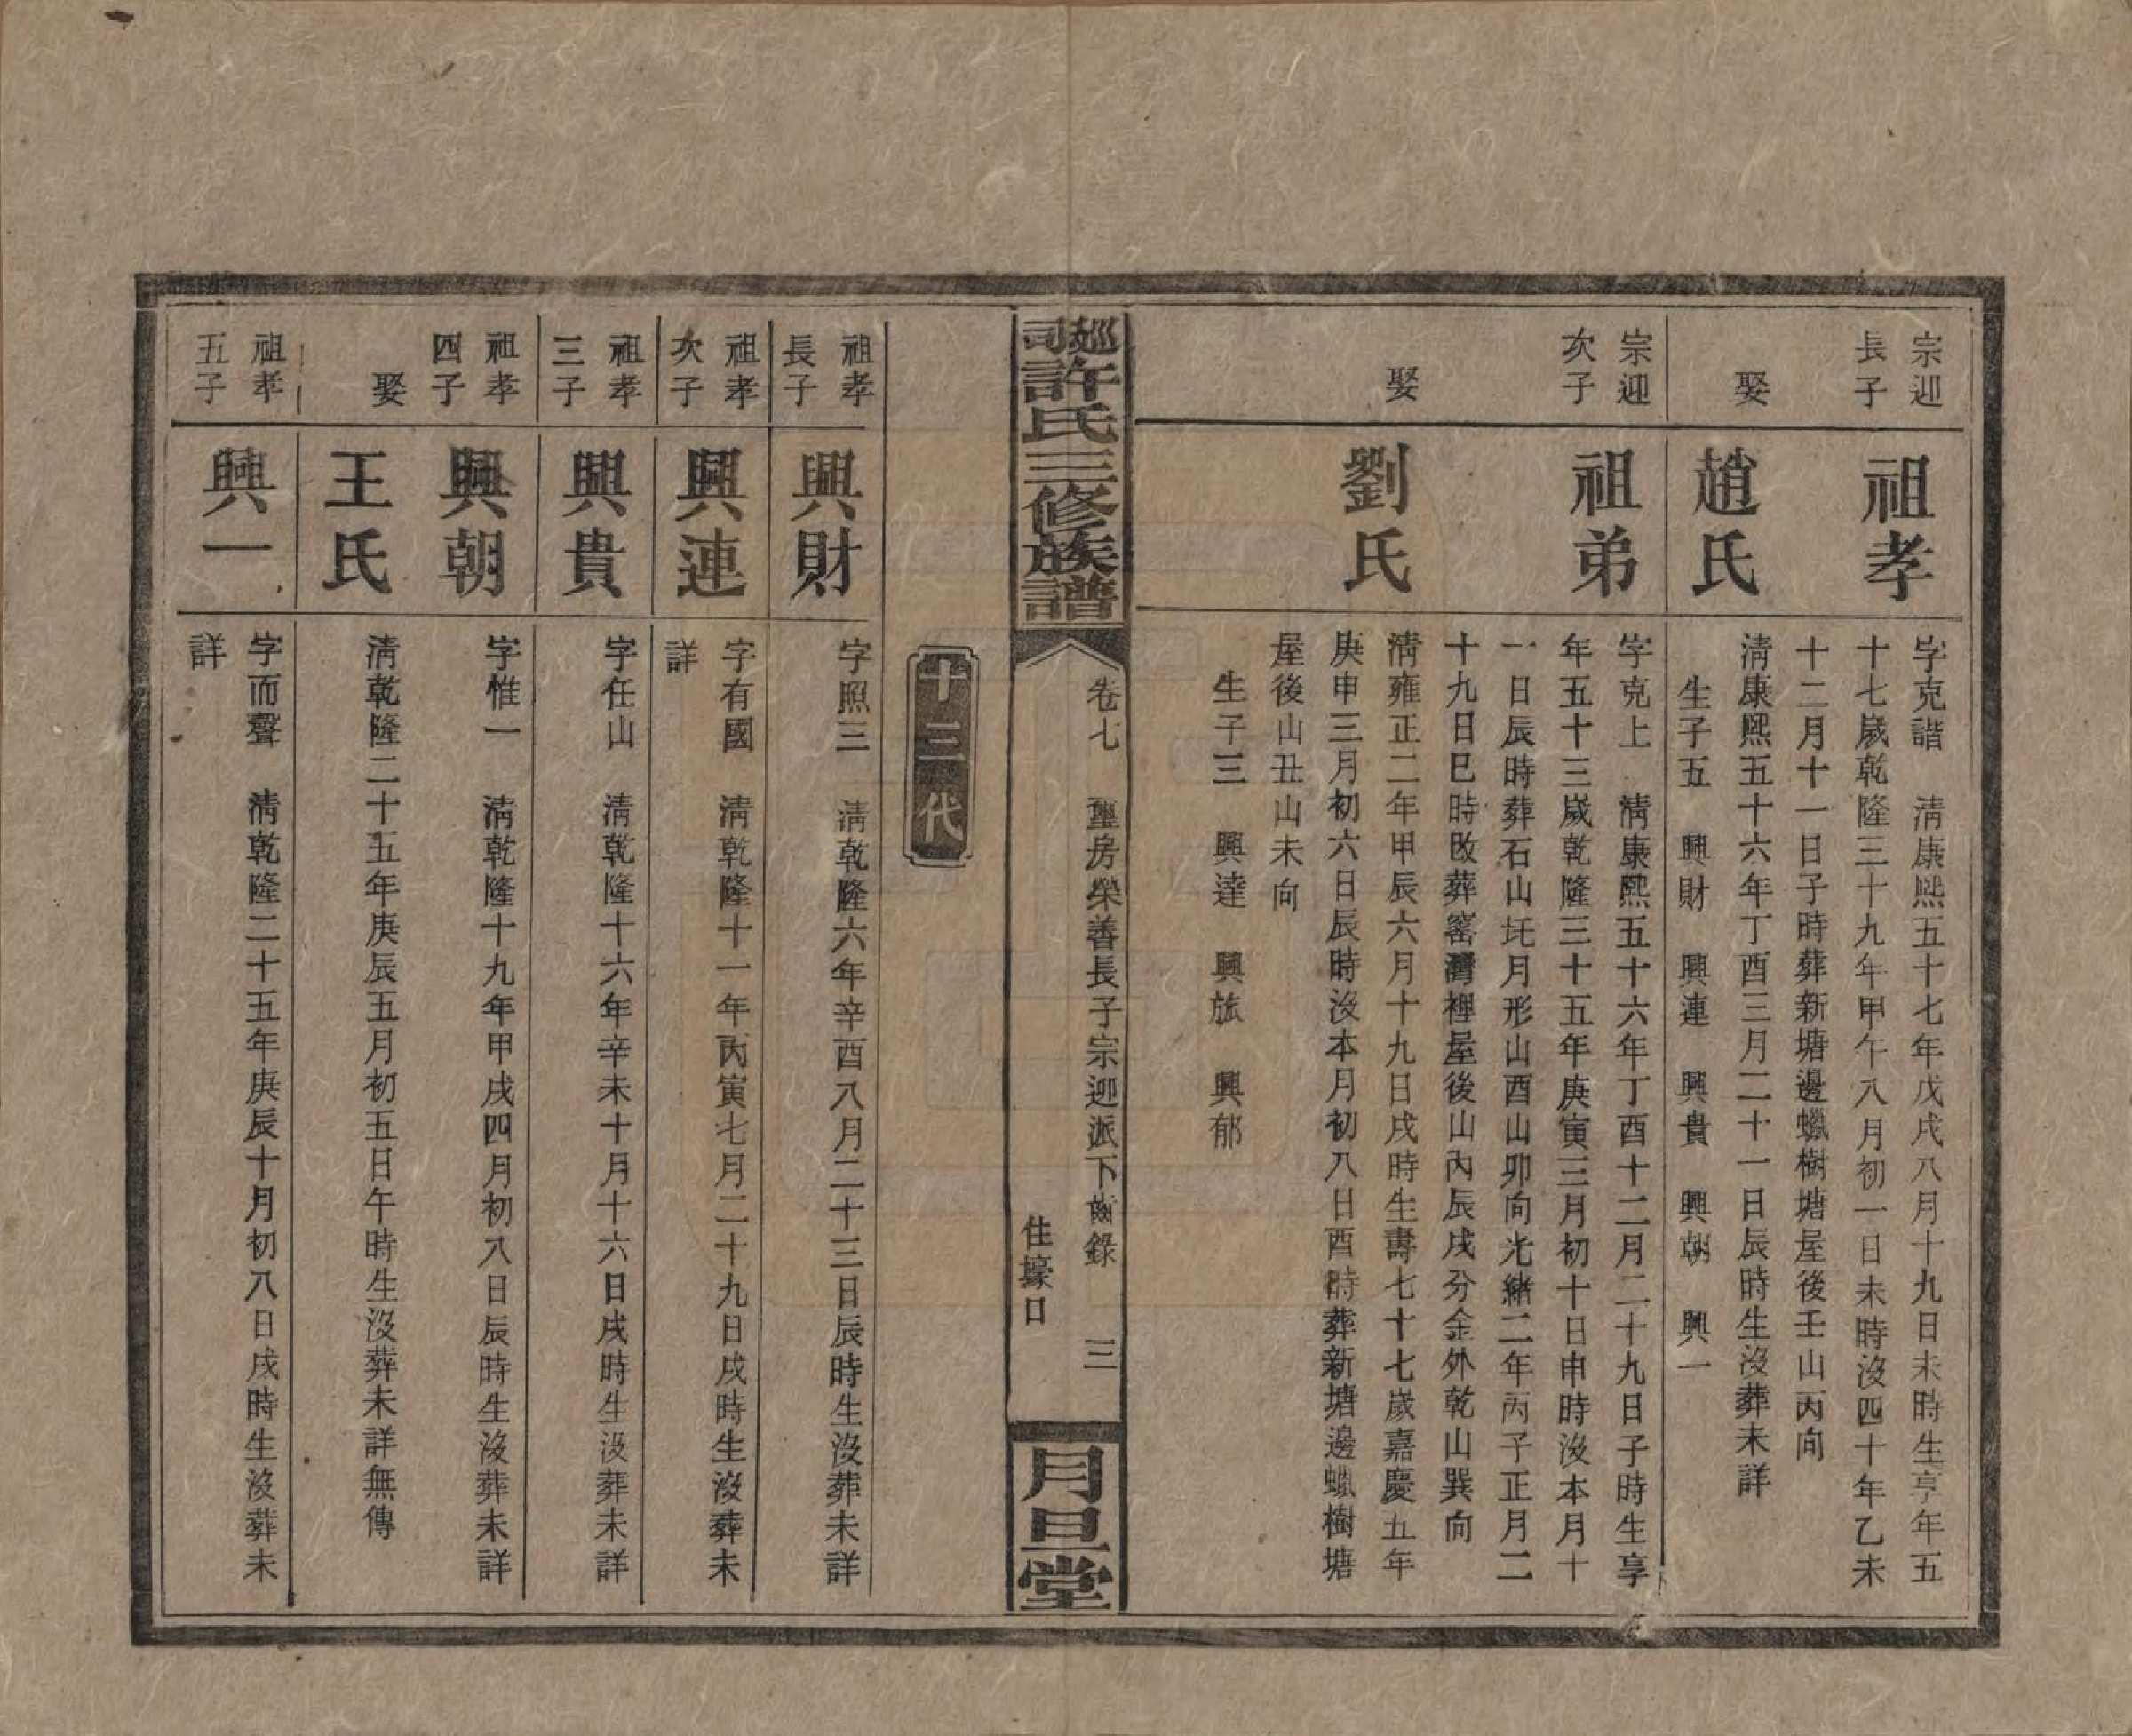 宗迎
長子
祖孝
字克諧　清康熙五十七年戊戌八月十九日未時生亨年五
十七歲乾隆三十九年甲午八月初一日未時沒四十年乙未
十二月十一日子時葬新塘邊蠟樹塘屋後壬山丙向
娶
趙氏
清康熙五十六年丁酉三月二十一日辰時生沒葬未詳
生子五　興財　興連　興貴　興朝　興一
宗迎
次子
祖弟
字克上　清康熙五十六年丁酉十二月二十九日子時生享
年五十三歲乾隆三十五年庚寅三月初十日申時沒本月十
一日辰時葬石山圫月形山酉山卯向光緒二年丙子正月二
十九日巳時改葬窰灣裡屋後山內辰戌分金外乾山巽向
娶
劉氏
清雍正二年甲辰六月十九日戌時生壽七十七歲嘉慶五年
庚申三月初六日辰時沒本月初八日酉時葬新塘邊蠟樹塘
屋後山丑山未向
生子三　興達　興旅　興郁
巡司許氏三修族譜
卷七　璽房榮善長子宗迎派下齒錄　三
住壕口
月旦堂
十三代
祖孝
長子
興財
字照三　清乾隆六年辛酉八月二十三日辰時生沒葬未詳
祖孝
次子
興連
字有國　清乾隆十一年丙寅七月二十九日戌時生沒葬未
詳
祖孝
三子
興貴
字任山　清乾隆十六年辛未十月十六日戌時生沒葬未詳
祖孝
四子
興朝
字惟一　清乾隆十九年甲戌四月初八日辰時生沒葬未詳
娶
王氏
清乾隆二十五年庚辰五月初五日午時生沒葬未詳無傳
祖孝
五子
興一
字而聲　清乾隆二十五年庚辰十月初八日戌時生沒葬未
詳